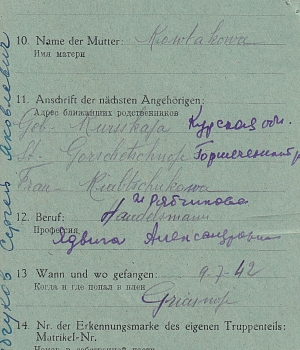 10. Name der Mutter: Kowlakowa
Имя матери
11. Anschrift der nächsten Angehörigen:
Адрес ближайших родственников
Geb. Kurskaja Курская обл.
St. Gorschetschnoje Горшеченский р
Frau - Riabtschukowa
Рябчукова
12. Beruf: Handelsmann
Профессия
Ядвига Александровна
13 Wann und wo gefangen: 9.7.42
Когда и где попал в плен
14. Nr. der Erkennungsmarke des eigenen Truppenteils:
Matrikel-Nr.
Сергей Яковлевич